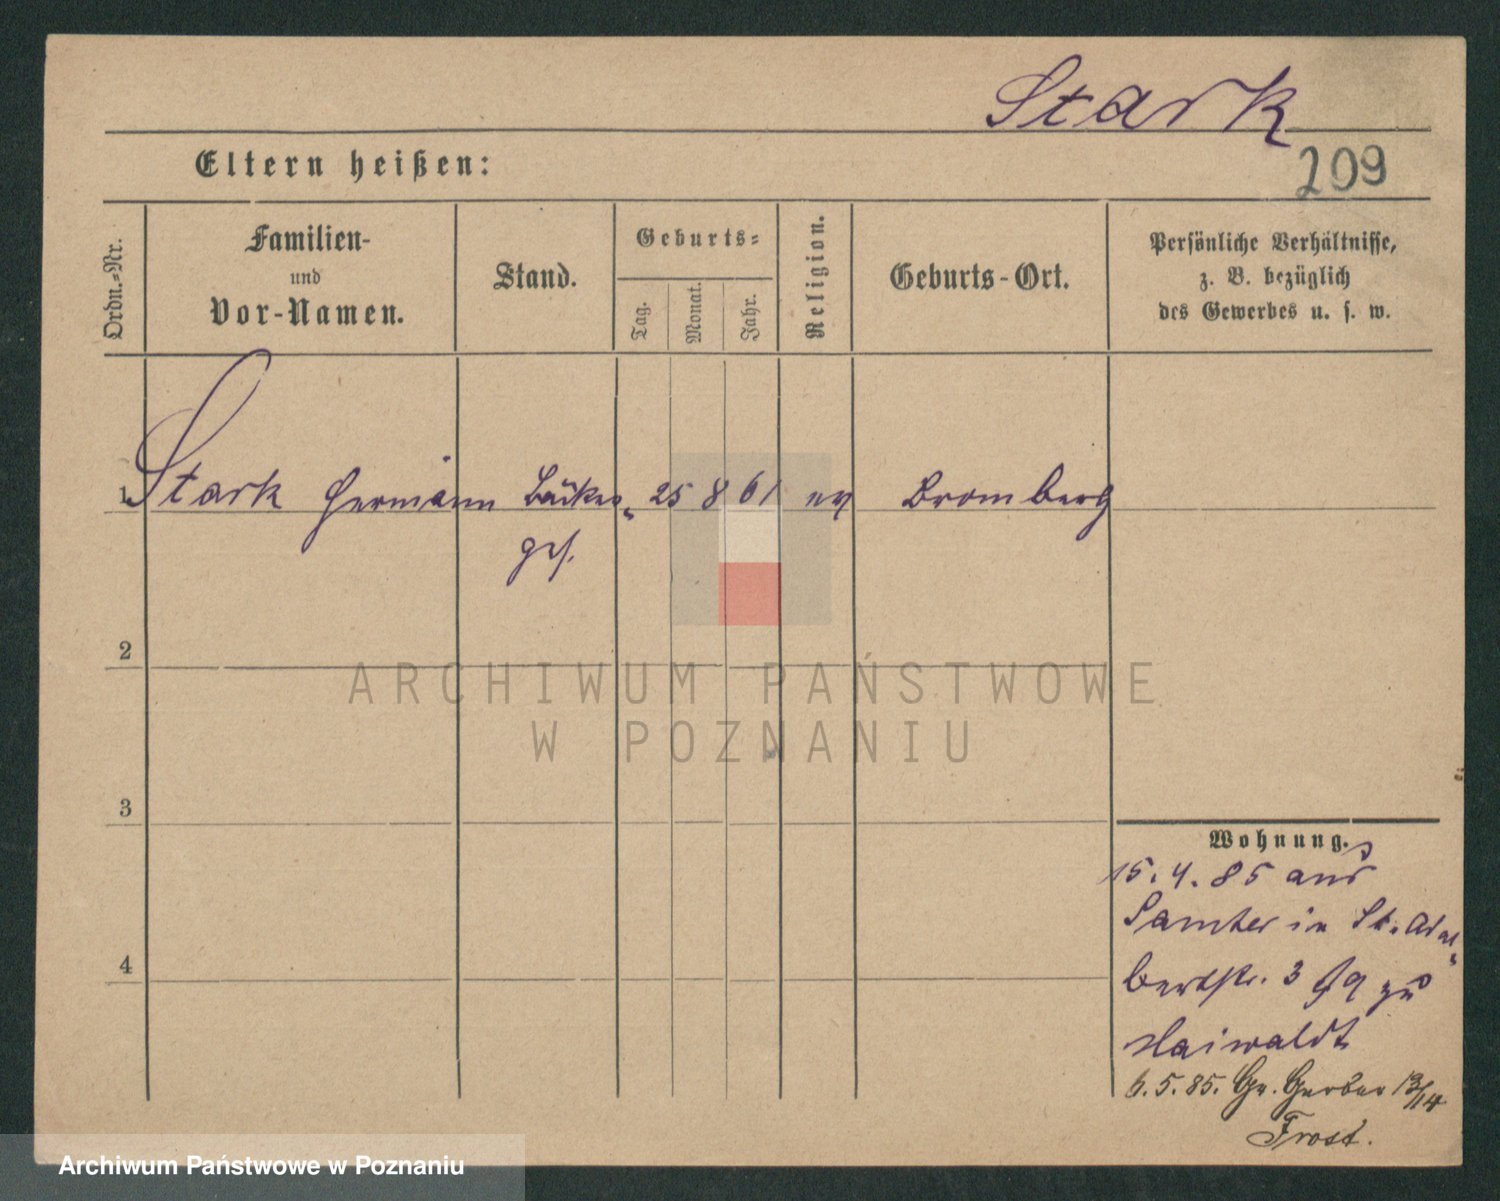 Stark
209
Eltern heißen:
Ordn.-Nr.
Familien-
und
Vor-Namen.
Stand.
Geburts-
Tag.
Monat.
Jahr.
Religion.
Geburts-Ort.
Persönliche Verhältnisse,
z. B. bezüglich
des Gewerbes u. s. w.
1 Stark Hermann Bäcker- 25 8 61 ev Bromberg
ges.
2
ARCHIWUM PAŃSTWOWE
W POZNANIU
3
Wohnung.
15. 4. 85 aus
Samter in St. Adal-
bertstr. 3 zu
Haiwaldt
6. 5. 85. Gr. Gerber 13/14
Frost.
4
Archiwum Państwowe w Poznaniu